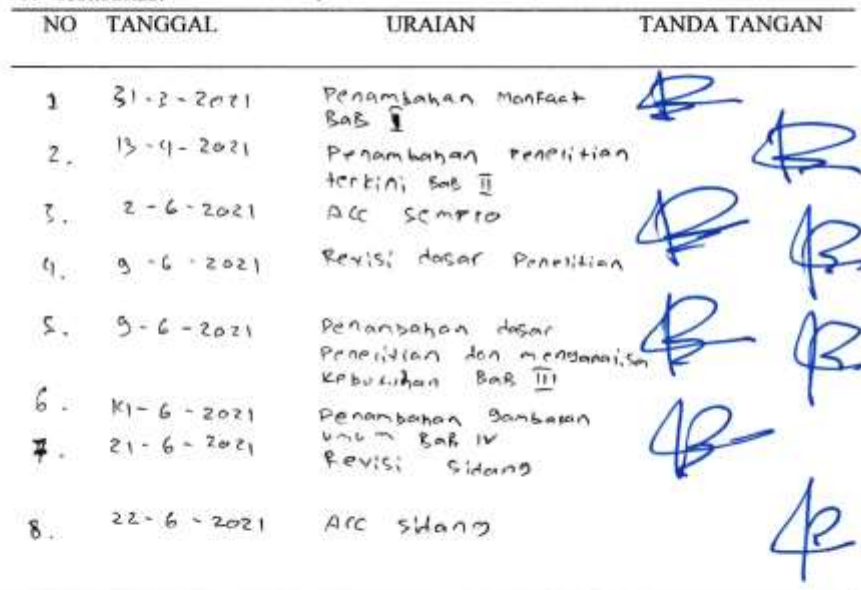 NO TANGGAL URAIAN TANDA TANGAN
1 31-3-2021 Penambahan Manfaat
BaB I
2. 13-4-2021 Penambahan Penelitian
terkini BaB II
3. 2-6-2021 ACC sempro
4. 9-6-2021 Revisi dasar Penelitian
5. 9-6-2021 Penambahan dasar
Penelitian dan menganalisa
Kebutuhan BaB III
6. -6-2021 Penambahan gambaran
umum BaB IV
7. 21-6-2021 Revisi Sidang
8. 22-6-2021 ACC sidang